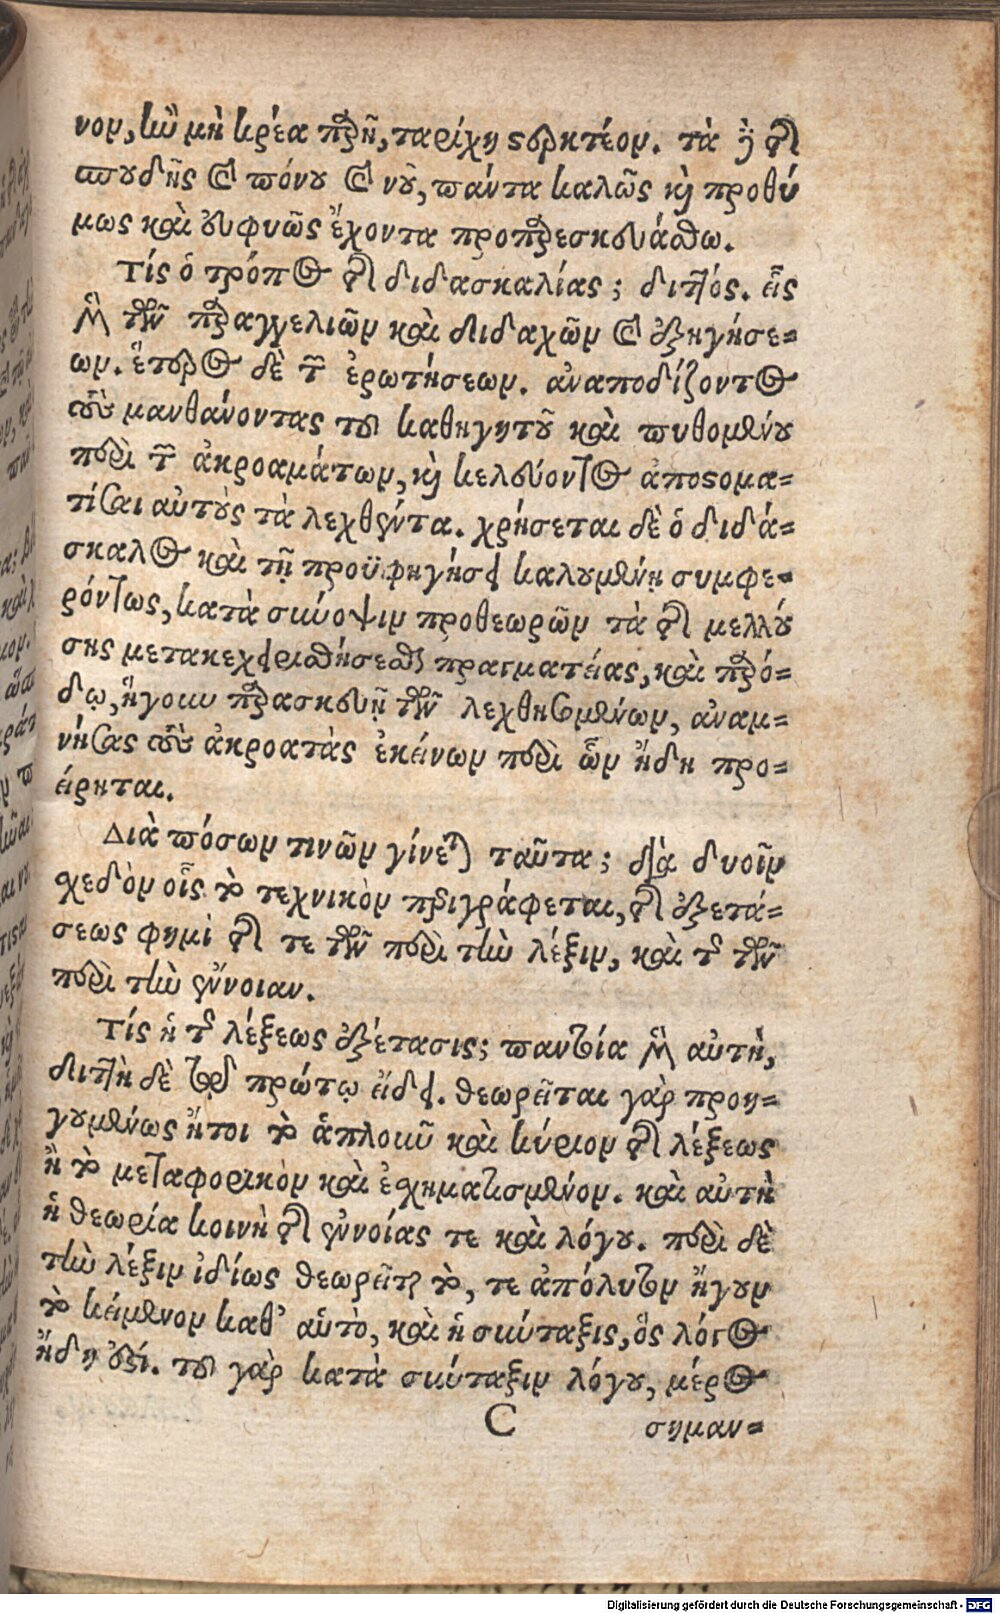 νον, κἂν μὴ κρέα παρῇ, ταρίχῃ στερκτέον. τὰ δὲ τῆς
σπουδῆς καὶ πόνου καὶ νοῦ, πάντα καλῶς καὶ προθύ
μως καὶ εὐφυῶς ἔχοντα προπαρεσκευάσθω.
Τίς ὁ τρόπος τῆς διδασκαλίας; διττός. εἷς
μὲν τῶν παραγγελιῶν καὶ διδαχῶν καὶ ἐξηγήσε=
ων. ἕτερος δὲ τῶν ἐρωτήσεων. ἀναποδίζοντος
τοὺς μανθάνοντας τοῦ καθηγητοῦ καὶ πυθομένου
περὶ τῶν ἀκροαμάτων, καὶ κελεύοντος ἀποστομα=
τίσαι αὐτοὺς τὰ λεχθέντα. χρήσεται δὲ ὁ διδά=
σκαλος καὶ τῇ προϋφηγήσει καλουμένῃ συμφε=
ρόντως, κατὰ σύνοψιν προθεωρῶν τὰ τῆς μελλού
σης μετακεχειρισθήσεσθαι πραγματείας, καὶ παρό=
δῳ, ἤγουν παρασκευῇ τῶν λεχθησομένων, ἀναμ=
νήσας τοὺς ἀκροατὰς ἐκείνων περὶ ὧν ἤδη προ=
είρηται.
Διὰ πόσων τινῶν γίνεται ταῦτα; διὰ δυοῖν
σχεδὸν οἷς τὸ τεχνικὸν περιγράφεται, τῆς ἐξετά=
σεως φημὶ τῆς τε τῶν περὶ τὴν λέξιν, καὶ τῆς τῶν
περὶ τὴν ἔννοιαν.
Τίς ἡ τῆς λέξεως ἐξέτασις; παντοία μὲν αὐτή,
διττὴ δὲ τῷ πρώτῳ εἴδει. θεωρεῖται γὰρ προη=
γουμένως ἤτοι τὸ ἁπλοικοῦ καὶ κύριον τῆς λέξεως
ἢ τὸ μεταφορικὸν καὶ ἐσχηματισμένον. καὶ αὐτὴ
ἡ θεωρία κοινὴ τῆς ἐννοίας τε καὶ λόγου. περὶ δὲ
τὴν λέξιν ἰδίως θεωρεῖται τὸ, τε ἀπόλυτον ἤγουν
τὸ κείμενον καθ' αὑτὸ, καὶ ἡ σύνταξις, ὃς λόγος
ἤδη ἐστί. τοῦ γὰρ κατὰ σύνταξιν λόγου, μέρος
C σημαν=